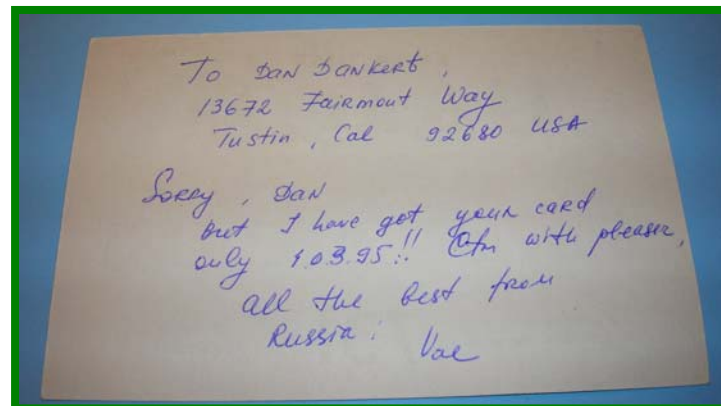 To Dan Dankert,
13672 Fairmont Way
Tustin, Cal 92680 USA
Sorry, Dan
but I have got your card
only 1.03.95!! Cfm with pleasure,
all the best from
Russia: Val